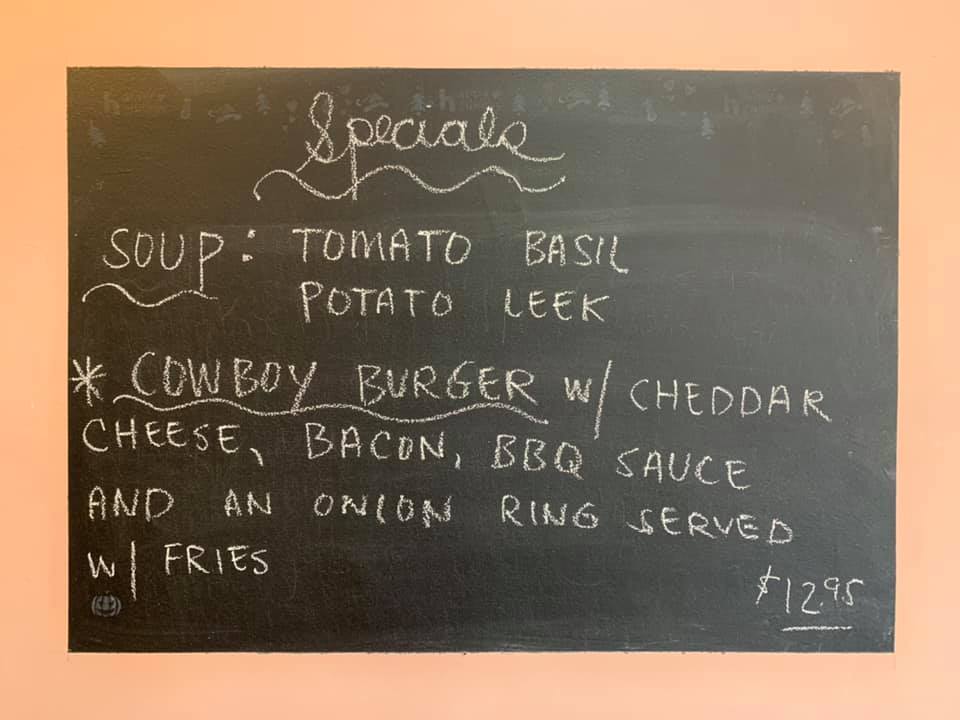 Specials
SOUP: TOMATO BASIL
POTATO LEEK
* COWBOY BURGER W/ CHEDDAR
CHEESE, BACON, BBQ SAUCE
AND AN ONION RING SERVED
W/ FRIES
$12.95